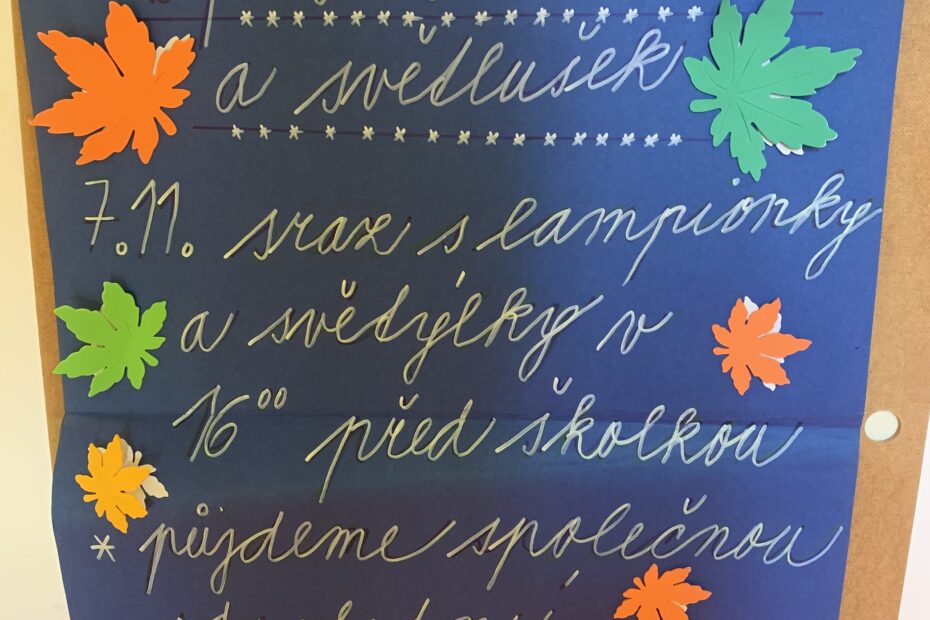 * * * * * * * * * * * * * * * *
a světlušek
* * * * * * * * * * * * * * * * *
7.11. sraz s lampionky
a světýlky v
16⁰⁰ před školkou
* půjdeme společnou